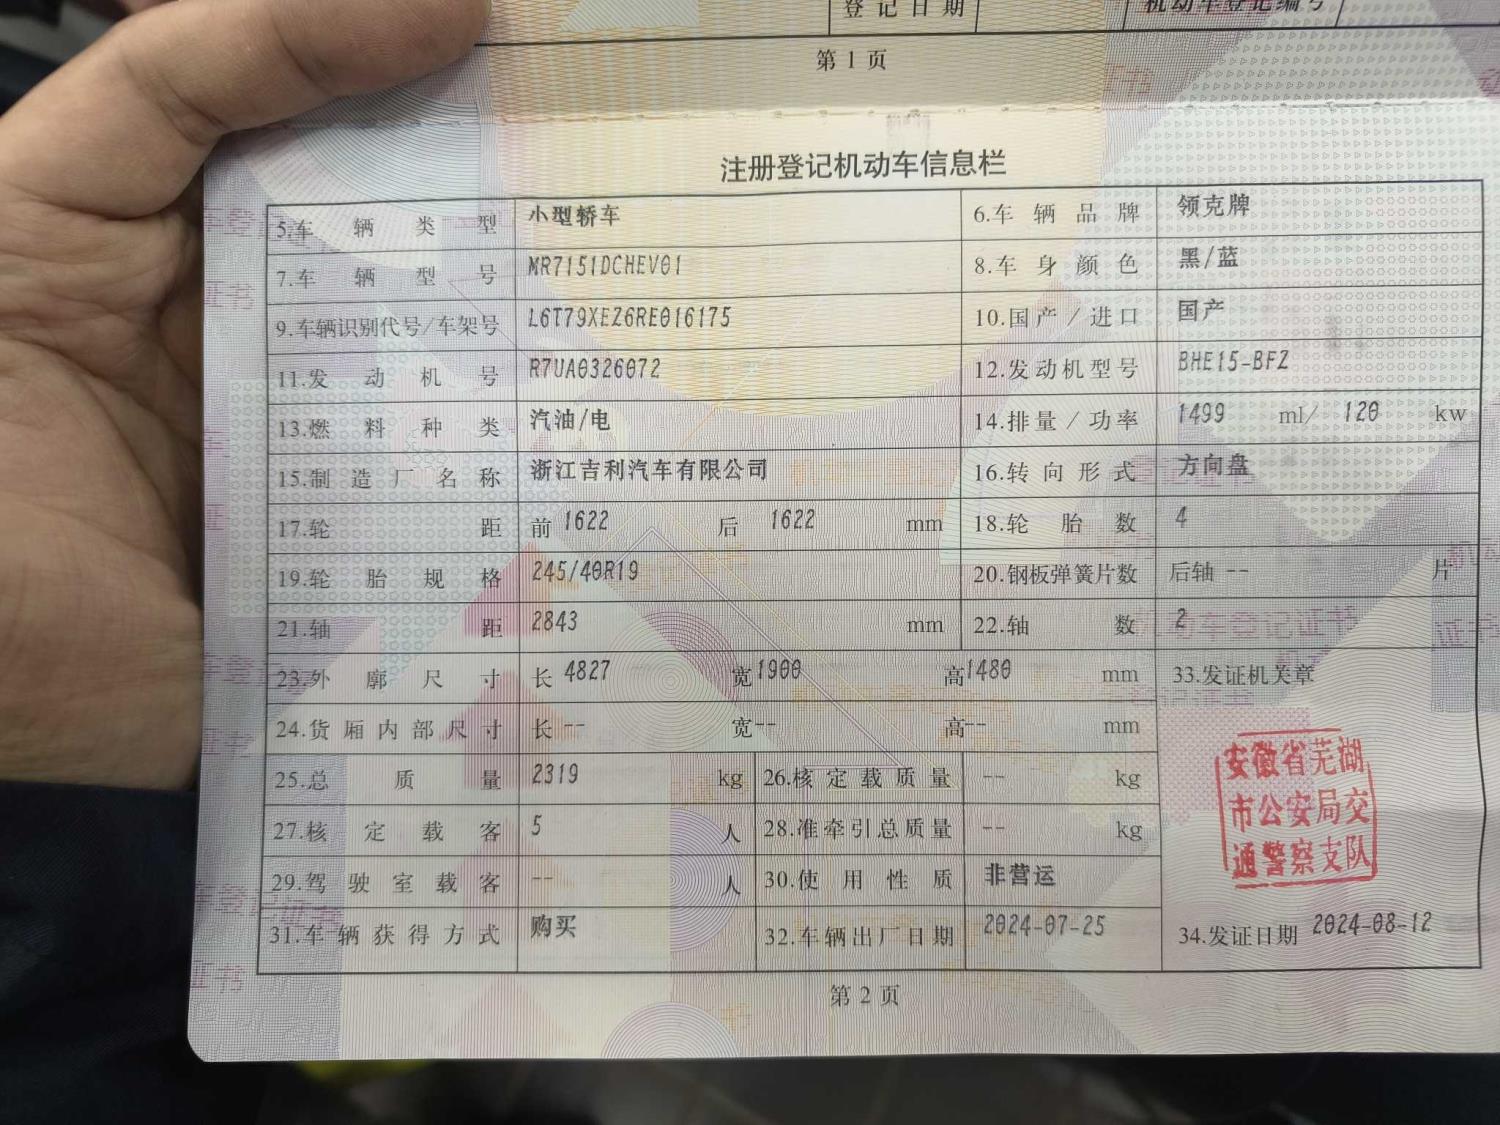 登记日期 机动车登记编号
第 1 页
注册登记机动车信息栏
5.车辆类型 小型轿车 6.车辆品牌 领克牌
7.车辆型号 MR7151DCHEV01 8.车身颜色 黑/蓝
9.车辆识别代号/车架号 L6T79XEZ6RE016175 10.国产/进口 国产
11.发动机号 R7UA0326072 12.发动机型号 BHE15-BFZ
13.燃料种类 汽油/电 14.排量/功率 1499 ml/ 120 kw
15.制造厂名称 浙江吉利汽车有限公司 16.转向形式 方向盘
17.轮距 前 1622 后 1622 mm 18.轮胎数 4
19.轮胎规格 245/40R19 20.钢板弹簧片数 后轴 -- 片
21.轴距 2843 mm 22.轴数 2
23.外廓尺寸 长 4827 宽 1900 高 1480 mm 33.发证机关章
24.货厢内部尺寸 长 -- 宽 -- 高 -- mm
25.总质量 2319 kg 26.核定载质量 -- kg
27.核定载客 5 人 28.准牵引总质量 -- kg
29.驾驶室载客 -- 人 30.使用性质 非营运
安徽省芜湖
市公安局交
通警察支队
31.车辆获得方式 购买 32.车辆出厂日期 2024-07-25 34.发证日期 2024-08-12
第 2 页